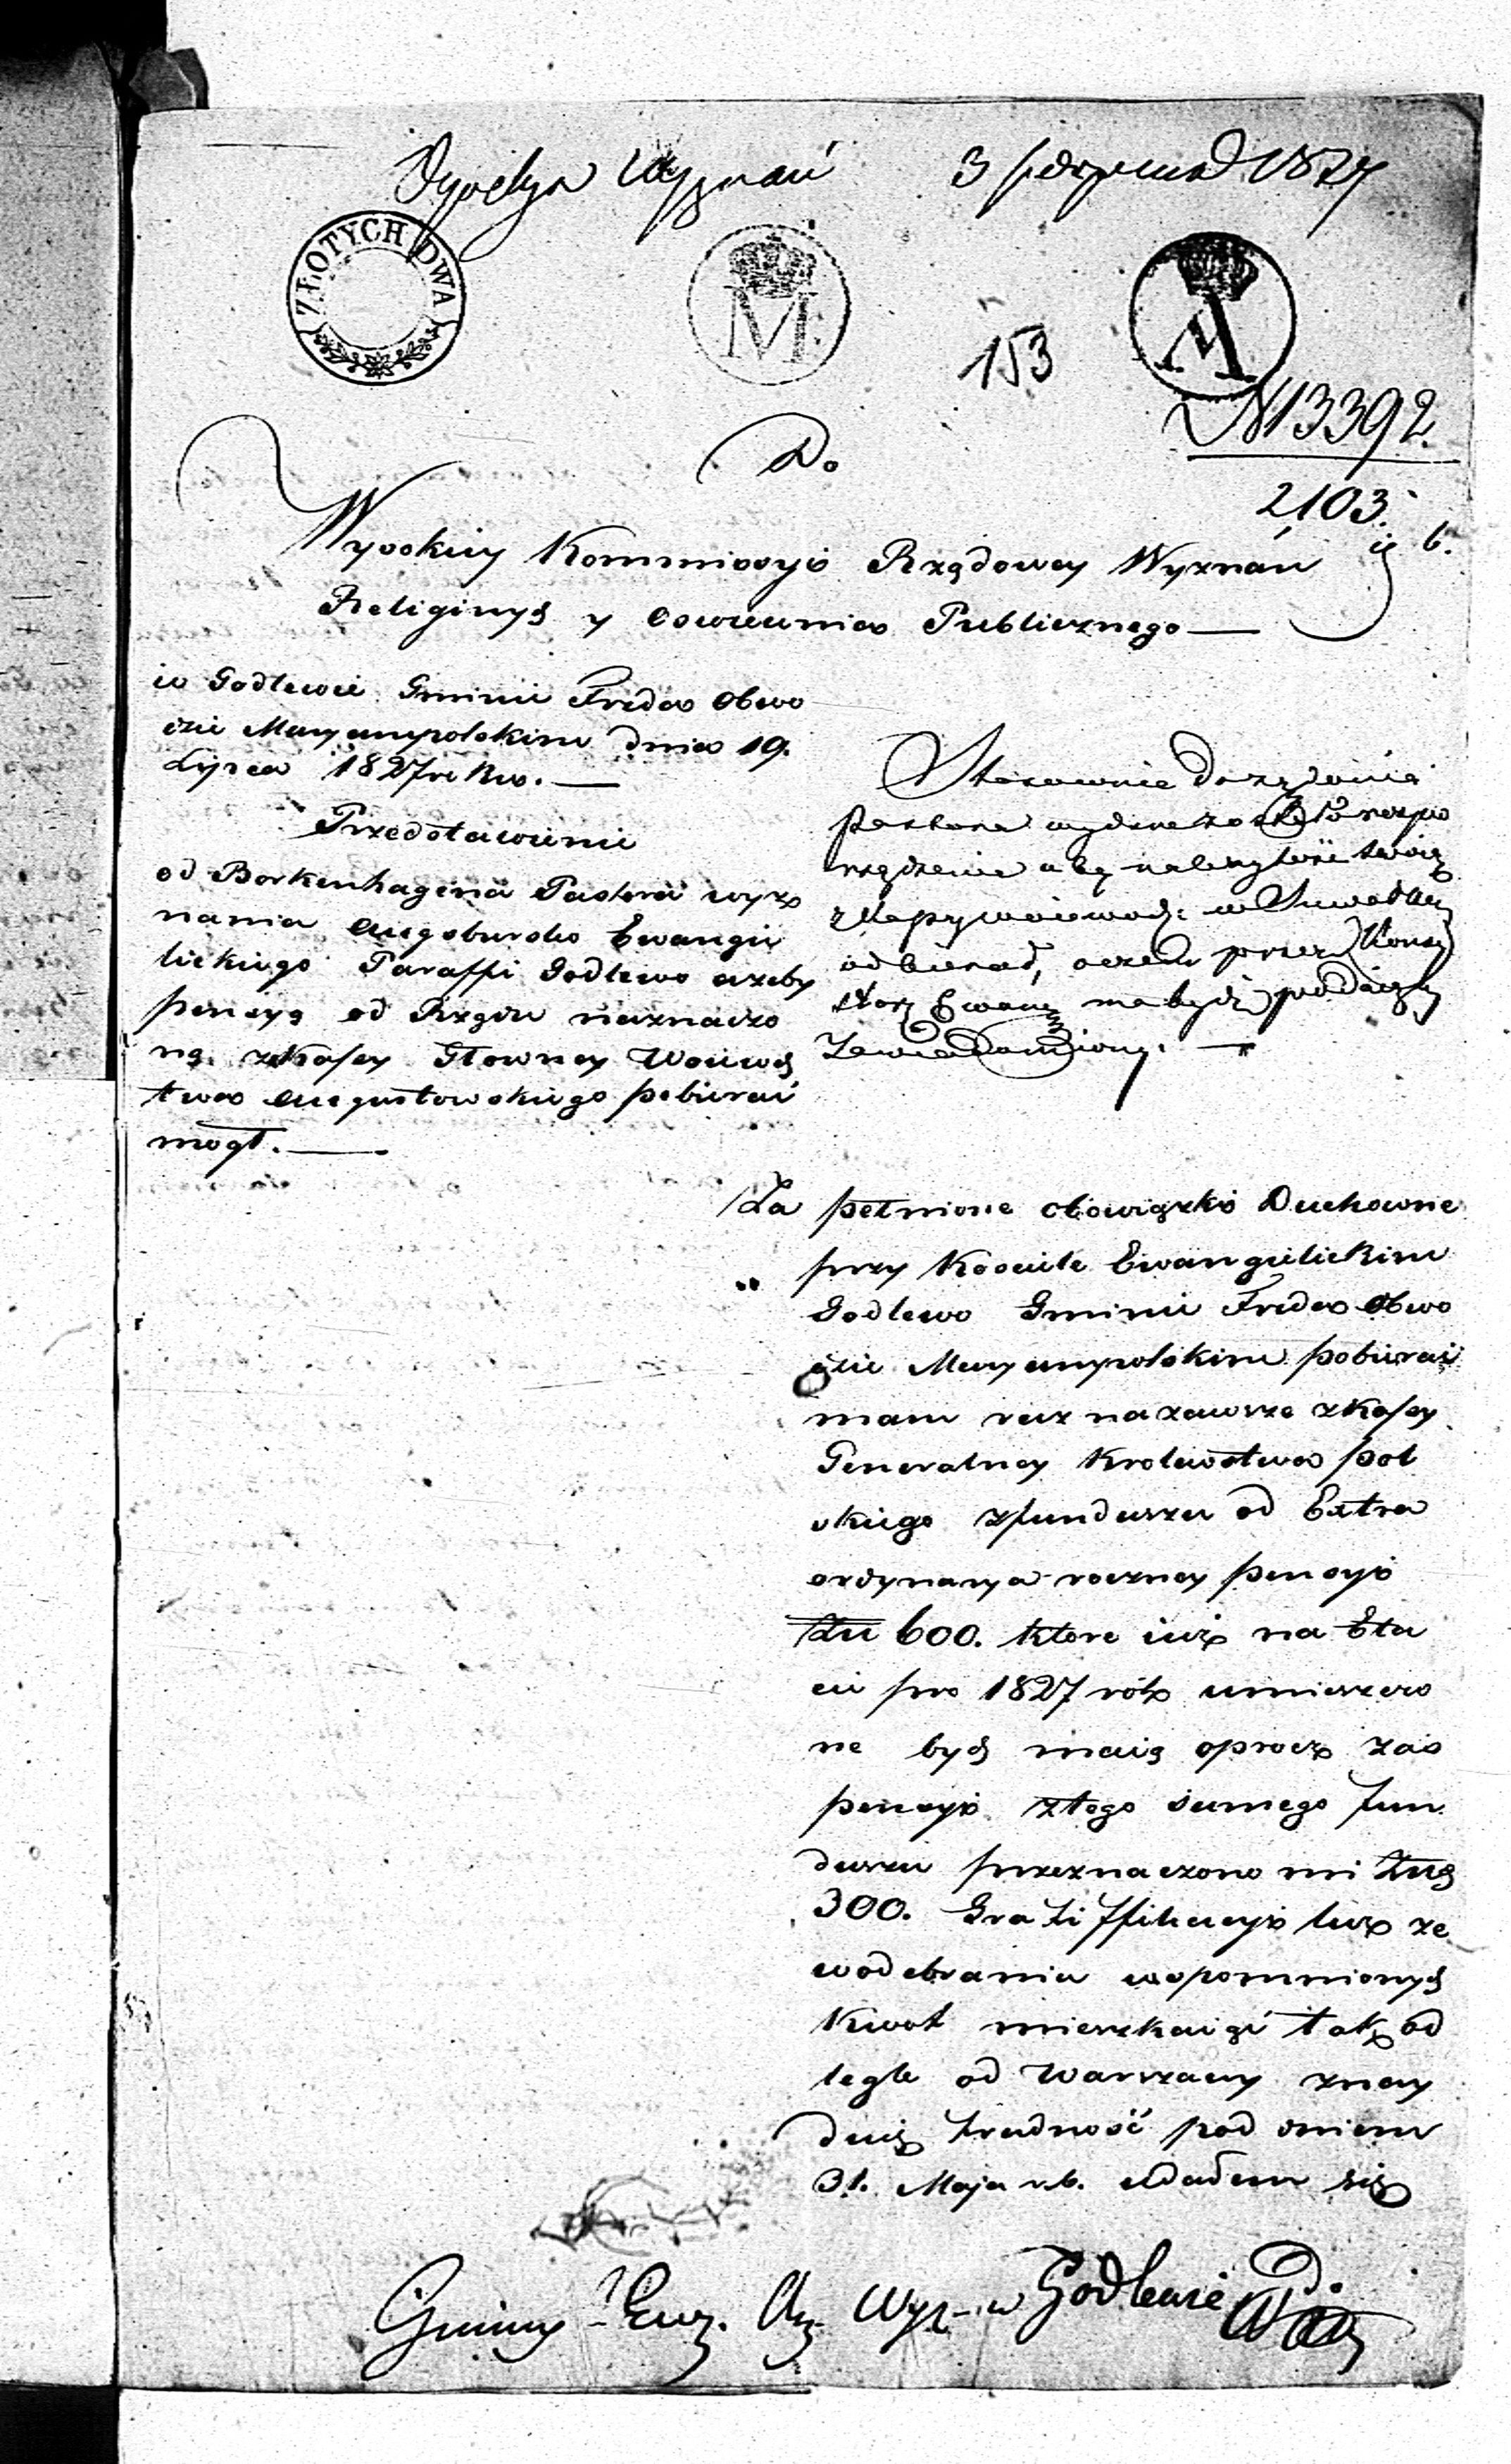 3 sierpnia 1827
ZŁOTYCH DWA
M
A
153
N 13392.
2103.
Do
Wysokiey Kommissyi Rządowey Wyznań
Religinych y Oswiecenia Publicznego
w Godlewie Gminie Freda Obwo
dzie Maryampolskim dnia 19.
Lipca 1827 roku.
Przedstawienie
od Borkenhagena Pastora wyz
nania Augsbursko Ewangie
lickiego Paraffi Godlewo azeby
pensyą od Rządu naznaczo
ną z Kassy Głowney Woiewodz
twa Augustowskiego pobierać
mogł.
Stosownie do żądania
Pastora wydane zostało rozpo
rządzenie aby należytość swoią
z Kassy woiewodz: w Suwałkach
odbierał, o czem przez Konsy
storz Ewang. ma bydź
zawiadomiony.
Za pełnione obowiązki Duchowne
przy Kosciele Ewangielickim
Godlewo Gminie Freda Obwo
dzie Maryampolskim pobierać
mam raz na zawsze z Kassy
Generalney Krolewstwa Pol
skiego z funduszu od Extra
ordynarya roczney pensyi
Złł 600. ktore iuż na Eta
cie pro 1827 rok umieszczo
ne bydź maią oprocz zaś
pensyi z tego samego fun
duszu przeznaczono mi
300. Gratiffikacyi lecz ze
w odebraniu wspomnionych
Kwot mieszkaiąc tak od
legle od Warszawy znay
duię trudność pod dniem
31. Maja r.b. udałem się
Gminy Ewg. Wyz. w Godlewie